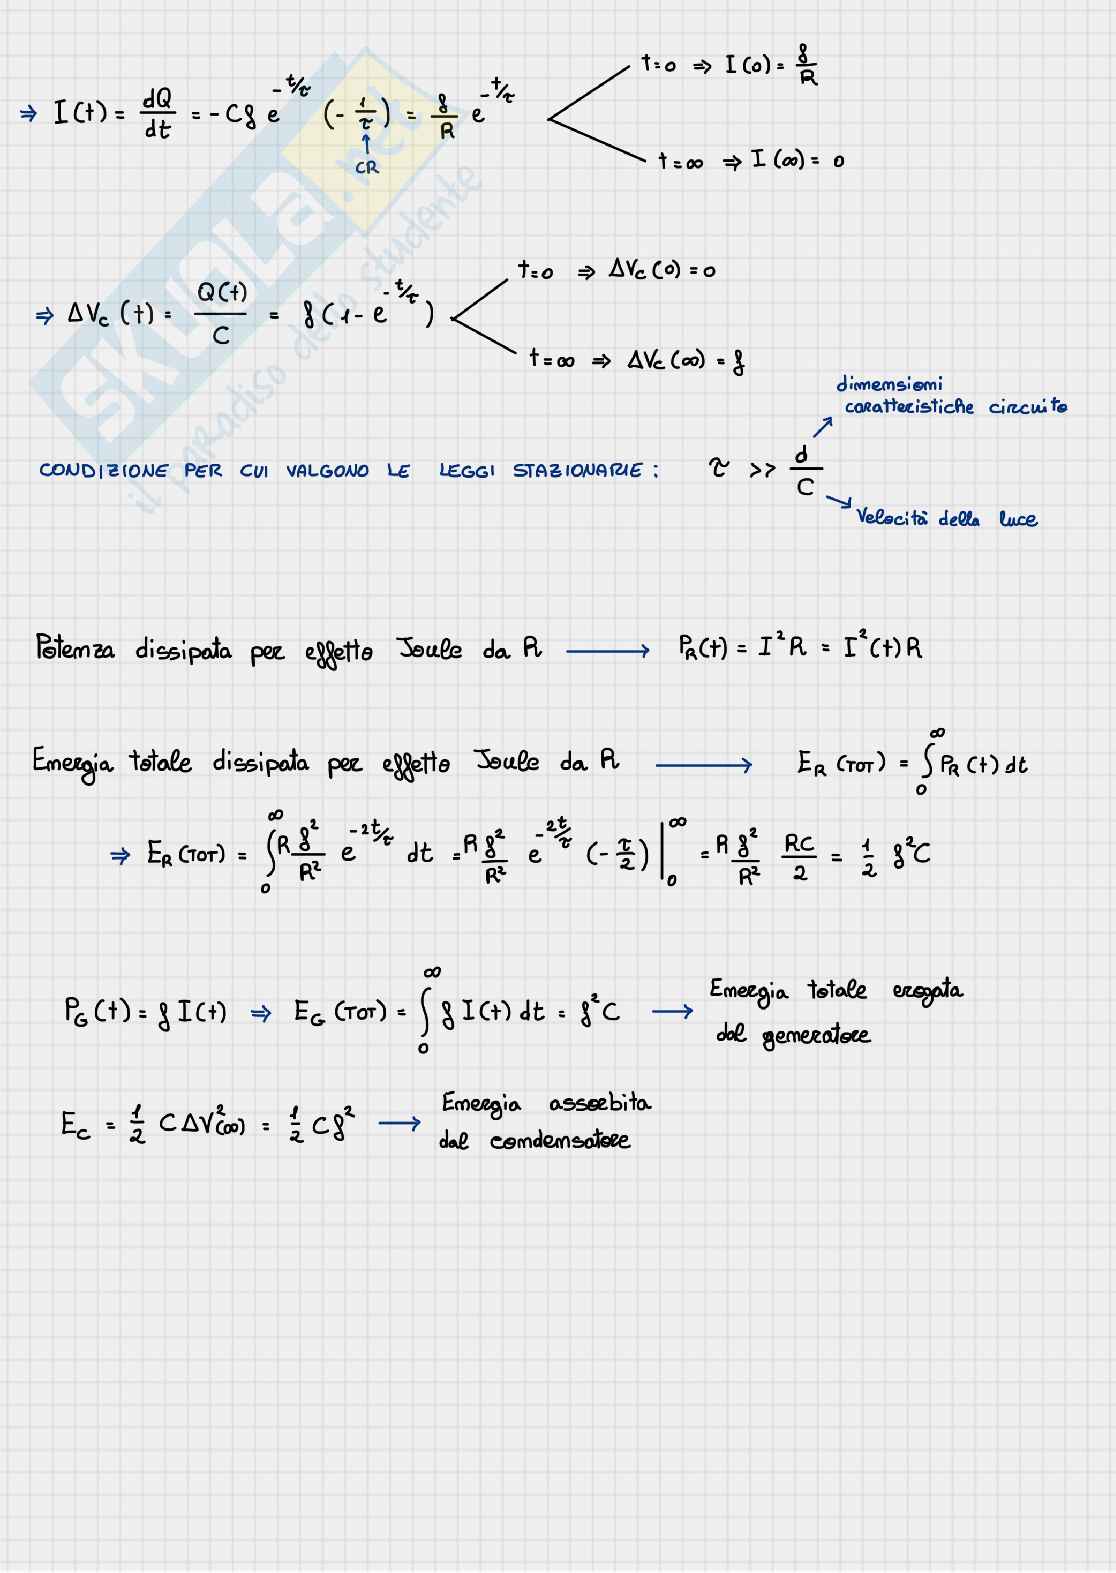 ⇒ I(t) = dQ/dt = -Cƒ e^(-t/τ) (-1/τ) = ƒ/R e^(-t/τ)
t=0 ⇒ I(0) = ƒ/R
t=∞ ⇒ I(∞) = 0
↑
CR
⇒ ΔVc(t) = Q(t)/C = ƒ(1-e^(-t/τ))
t=0 ⇒ ΔVc(0) = 0
t=∞ ⇒ ΔVc(∞) = ƒ
CONDIZIONE PER CUI VALGONO LE LEGGI STAZIONARIE: τ >> d/C
dimensioni
caratteristiche circuito
Velocità della luce
Potenza dissipata per effetto Joule da R → P_R(t) = I²R = I²(t)R
Energia totale dissipata per effetto Joule da R → E_R(TOT) = ∫₀^∞ P_R(t) dt
⇒ E_R(TOT) = ∫₀^∞ R ƒ²/R² e^(-2t/τ) dt = R ƒ²/R² e^(-2t/τ) (-τ/2) |₀^∞ = R ƒ²/R² RC/2 = 1/2 ƒ²C
P_G(t) = ƒ I(t) ⇒ E_G(TOT) = ∫₀^∞ ƒ I(t) dt = ƒ²C → Energia totale erogata
dal generatore
E_C = 1/2 C ΔV²(∞) = 1/2 Cƒ² → Energia assorbita
dal condensatore
SKUOLA.net
il paradiso dello studente